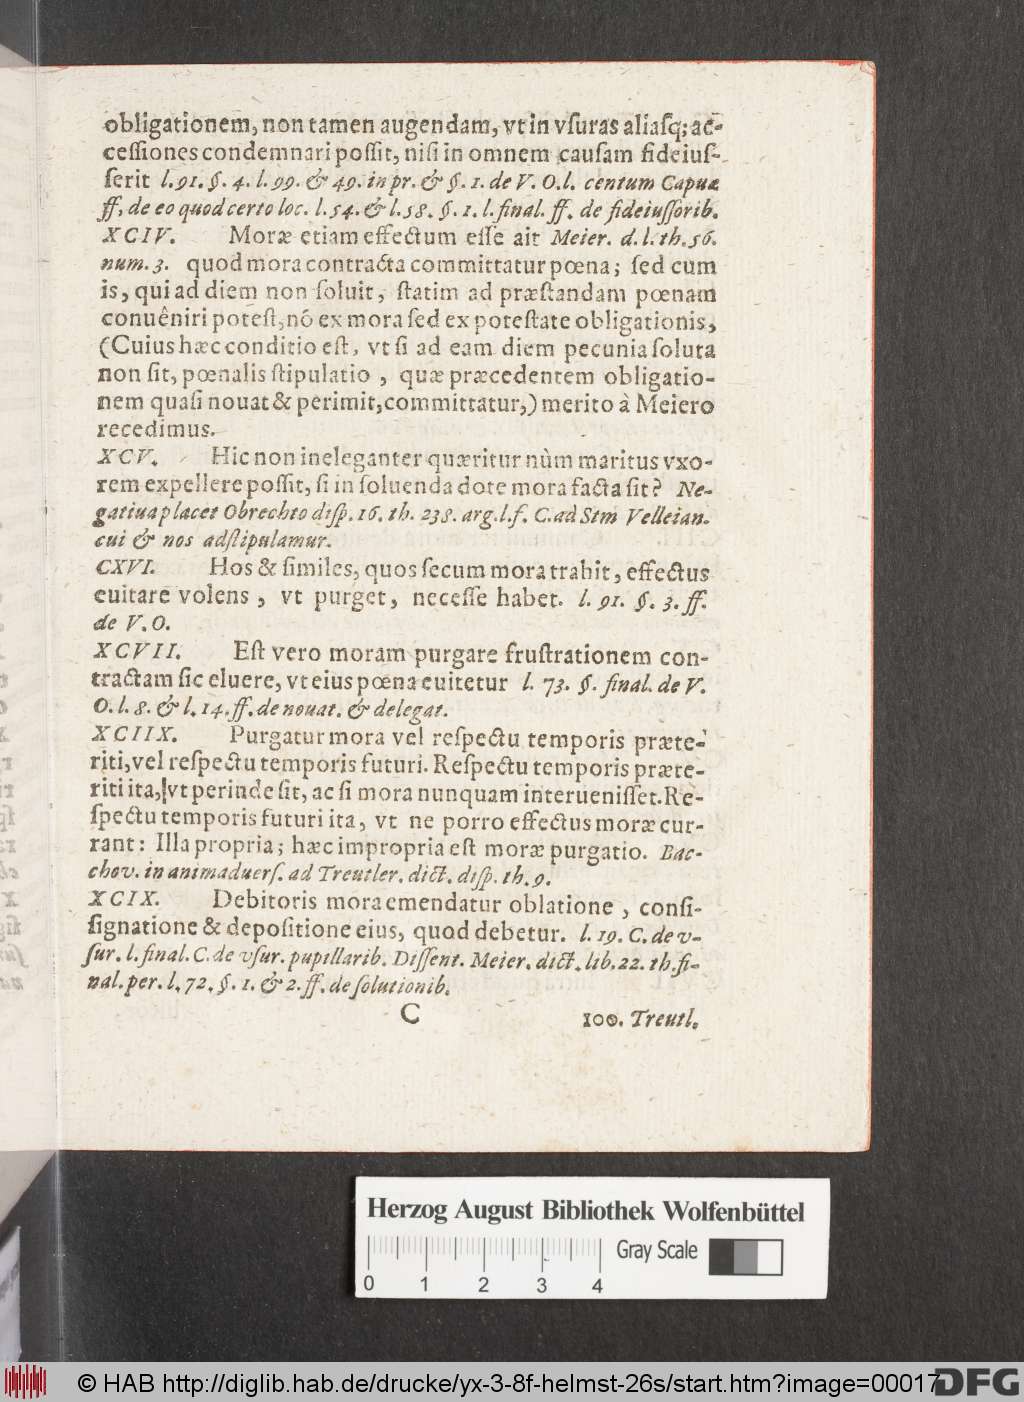 obligationem, non tamen augendam, vt in vſuras aliaſq; ac-
ceſſiones condemnari poſſit, niſi in omnem cauſam fideiuſ-
ſerit l. 91. §. 4. l. 99. & 49. in pr. & §. 1. de V. O. l. centum Capuæ
ff. de eo quod certo loc. l. 54. & l. 58. §. 1. l. final. ff. de fideiuſſorib.
XCIV. Moræ etiam effectum eſſe ait Meier. d. l. th. 56.
num. 3. quod mora contracta committatur pœna; ſed cum
is, qui ad diem non ſoluit, ſtatim ad præſtandam pœnam
conuêniri poteſt, nõ ex mora ſed ex poteſtate obligationis,
(Cuius hæc conditio eſt, vt ſi ad eam diem pecunia ſoluta
non ſit, pœnalis ſtipulatio, quæ præcedentem obligatio-
nem quaſi nouat & perimit, committatur,) merito à Meiero
recedimus.
XCV. Hic non ineleganter quæritur nùm maritus vxo-
rem expellere poſſit, ſi in ſoluenda dote mora facta ſit? Ne-
gatiua placet Obrechto diſp. 16. th. 238. arg. l. f. C. ad Stm Velleian.
cui & nos adſtipulamur.
CXVI. Hos & ſimiles, quos ſecum mora trahit, effectus
euitare volens, vt purget, neceſſe habet. l. 91. §. 3. ff.
de V. O.
XCVII. Eſt vero moram purgare fruſtrationem con-
tractam ſic eluere, vt eius pœna euitetur l. 73. §. final. de V.
O. l. 8. & l. 14. ff. de nouat. & delegat.
XCIIX. Purgatur mora vel reſpectu temporis præte-
riti, vel reſpectu temporis futuri. Reſpectu temporis præte-
riti ita, vt perinde ſit, ac ſi mora nunquam interueniſſet. Re-
ſpectu temporis futuri ita, vt ne porro effectus moræ cur-
rant: Illa propria; hæc impropria eſt moræ purgatio. Bac-
chov. in animaduerſ. ad Treutler. dict. diſp. th. 9.
XCIX. Debitoris mora emendatur oblatione, conſi-
ſignatione & depoſitione eius, quod debetur. l. 19. C. de v-
ſur. l. final. C. de vſur. pupillarib. Diſſent. Meier. dict. lib. 22. th. fi-
nal. per. l. 72. §. 1. & 2. ff. de ſolutionib.
C 100. Treutl.
Herzog August Bibliothek Wolfenbüttel
Gray Scale
0 1 2 3 4
© HAB http://diglib.hab.de/drucke/yx-3-8f-helmst-26s/start.htm?image=00017
DFG